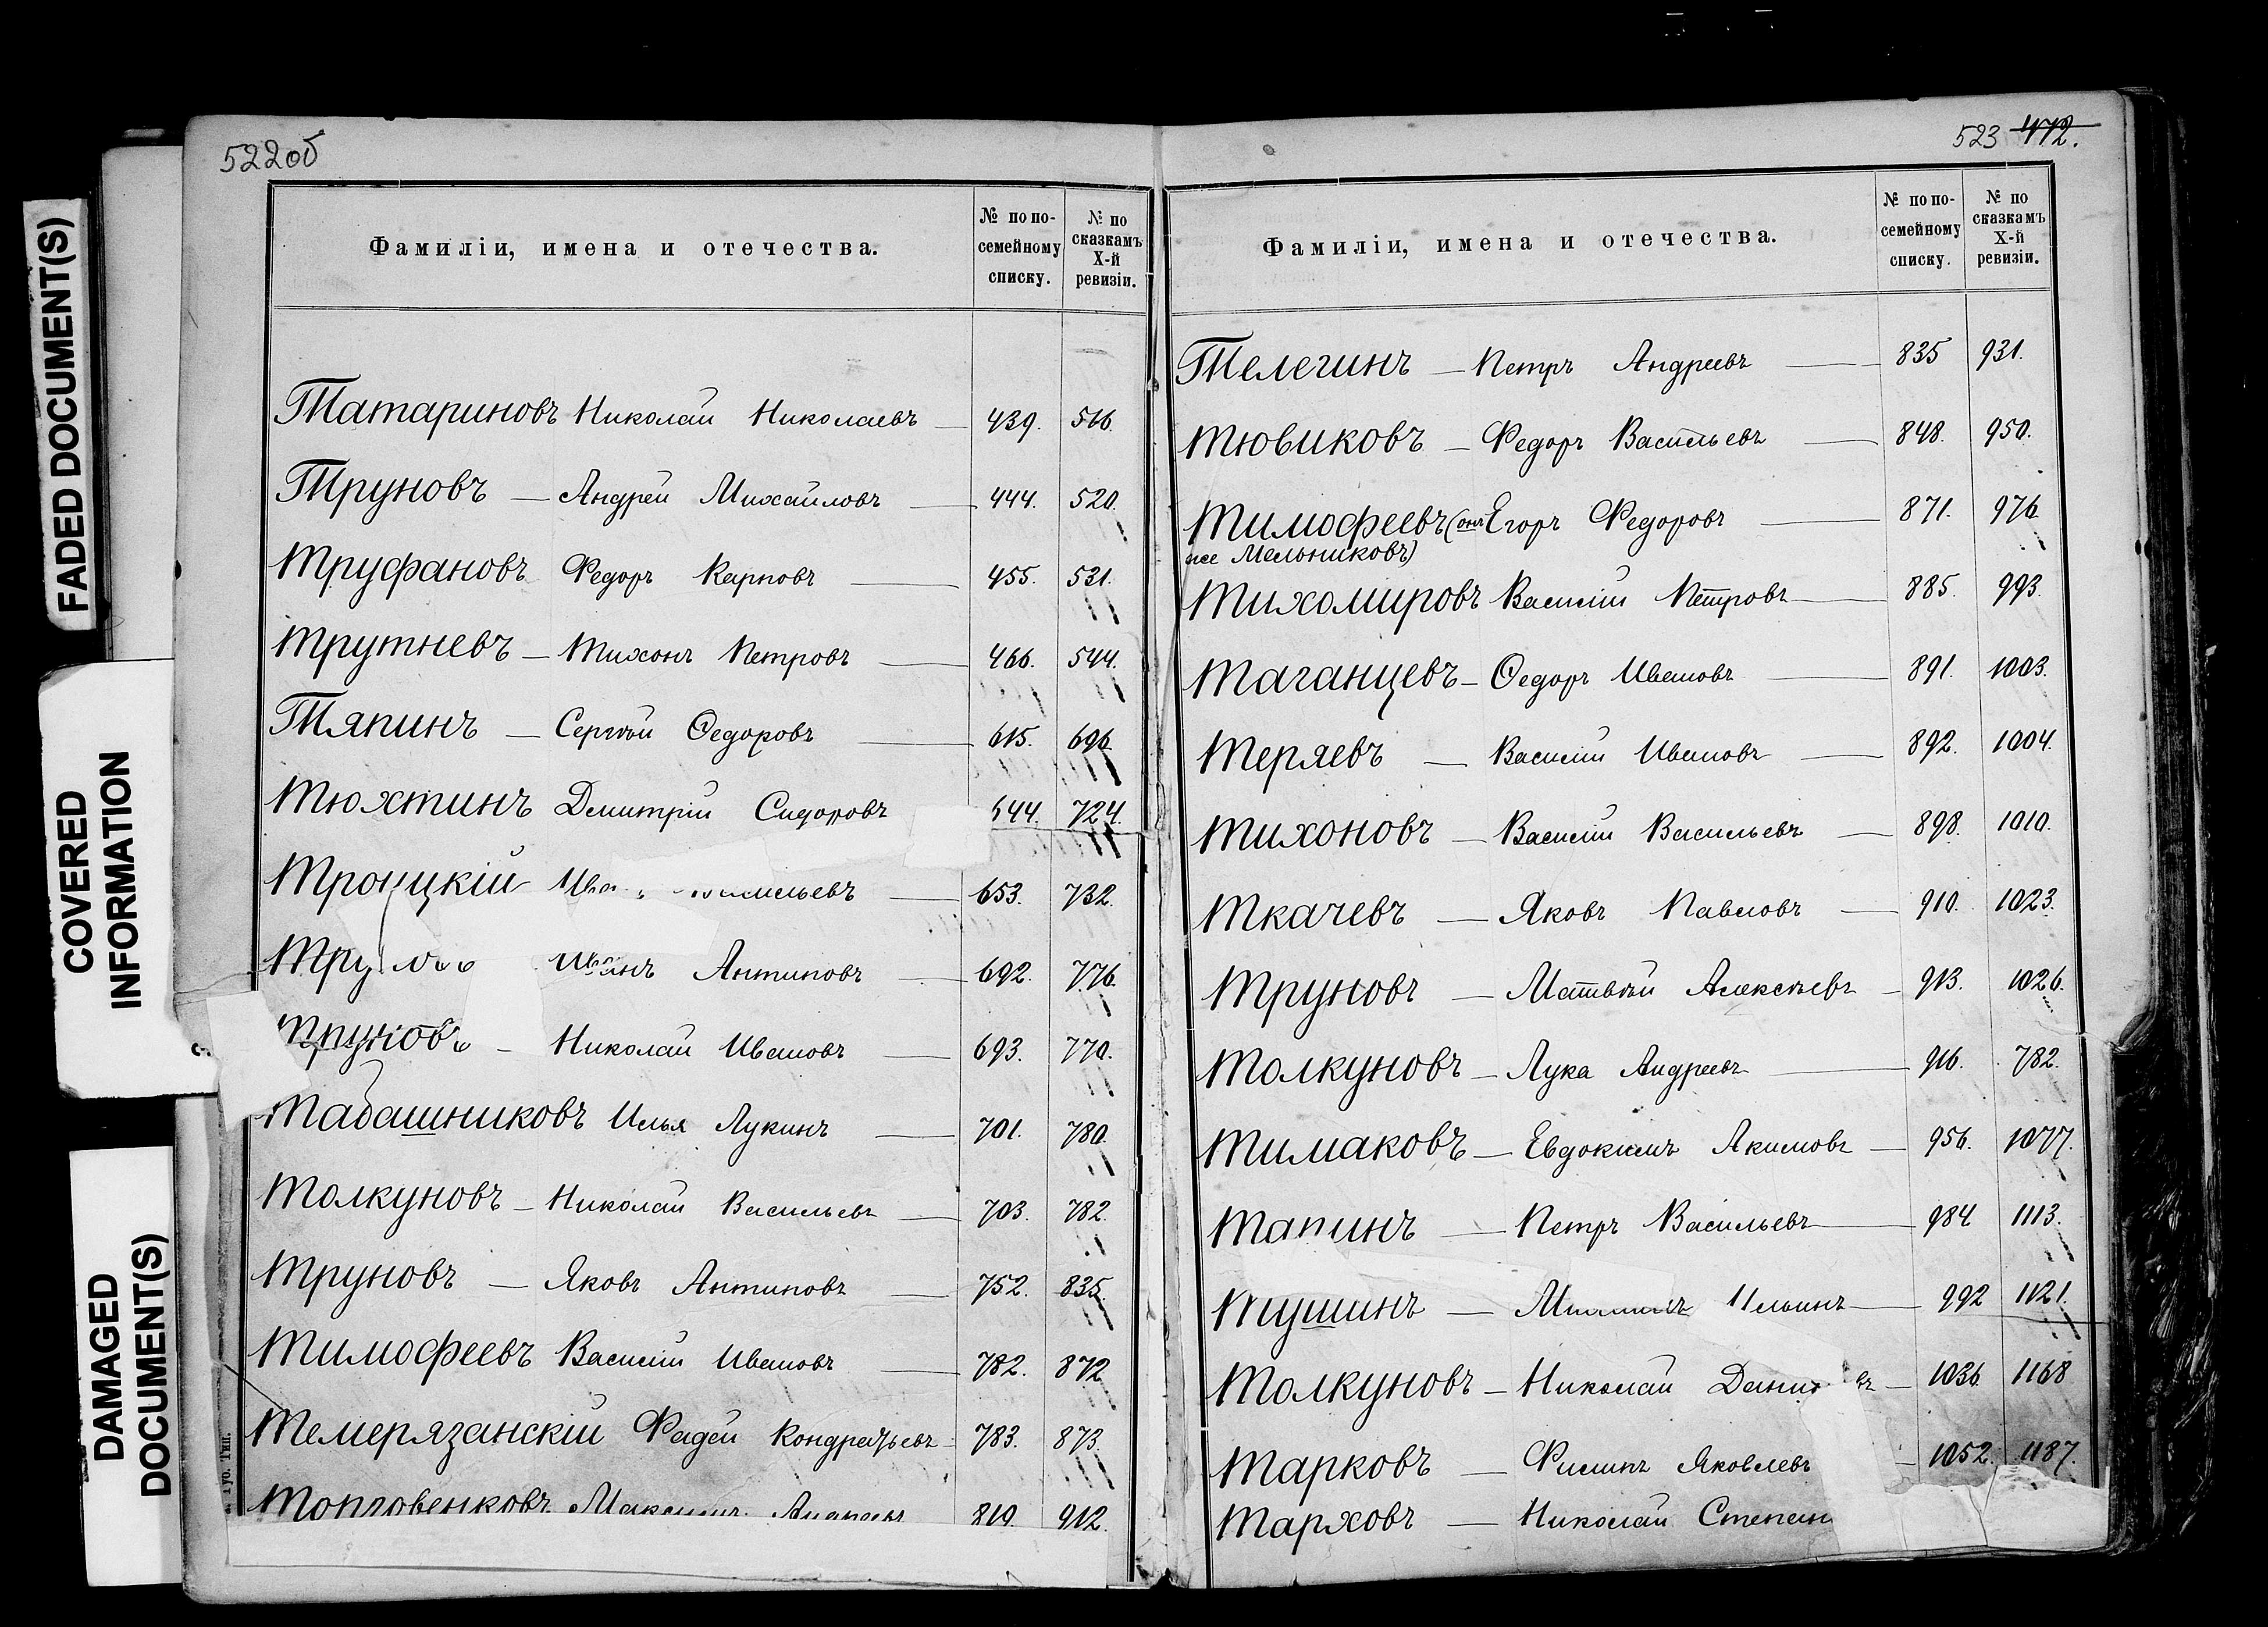 FADED DOCUMENT(S)
COVERED
INFORMATION
DAMAGED
DOCUMENT(S)
522об
Фамиліи, имена и отечества.
№ по по-
семейному
списку.
№ по
сказкамъ
X-й
ревизіи.
Татариновъ Николай Николаевъ 439. 516.
Труновъ — Андрей Михайловъ 444. 520.
Труфановъ Федоръ Карповъ 455. 531.
Трутневъ — Тихонъ Петровъ 466. 544.
Тяпинъ — Сергѣй Ѳедоровъ 615. 696.
Тюхтинъ Дмитрій Сидоровъ 644. 724.
Троицкій 653. 732.
Иванъ Антиповъ 692. 776.
Труновъ — Николай Ивановъ 693. 770.
Табашниковъ Илья Лукинъ 701. 780.
Толкуновъ — Николай Васильевъ 703. 782.
Труновъ — Яковъ Антиповъ 752. 835.
Тимофеевъ Василій Ивановъ 782. 872
Темерязанскій Фадей Кондратьевъ 783. 873.
Максимъ 819. 912.
Губ. Тип.
523 472.
Фамиліи, имена и отечества.
№ по по-
семейному
списку.
№ по
сказкамъ
X-й
ревизіи.
Телегинъ — Петръ Андреевъ 835 931.
Тювиковъ — Федоръ Васильевъ 848. 950.
Тимофеевъ (онъ Егоръ Федоровъ 871. 976
же Мельниковъ)
Тихомировъ Василій Петровъ 885. 993.
Таганцевъ — Ѳедоръ Ивановъ 891. 1003.
Теряевъ — Василій Ивановъ 892. 1004.
Тихоновъ — Василій Васильевъ 898. 1010.
Ткачевъ — Яковъ Павловъ 910. 1023.
Труновъ — Матвѣй Алексѣевъ 913. 1026.
Толкуновъ — Лука Андреевъ 916. 782.
Тимаковъ — Евдокимъ Акимовъ 956. 1077.
Тапинъ — Петръ Васильевъ 984 1113.
Тушинъ — Ильинъ 992 1121.
Толкуновъ — Николай 1036. 1168
Тарковъ — Филипъ Яковлевъ 1052. 1187.
Тарховъ — Николай Степан